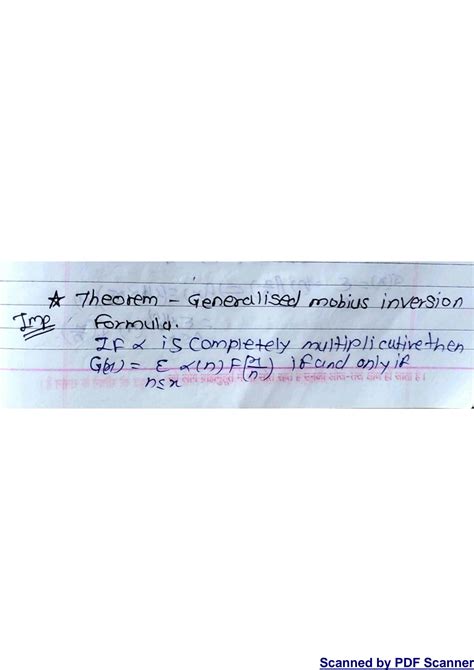 ☆ Theorem - Generalised mobius inversion
Imp formula.
If α is completely multiplicative then
G(x) = Σ α(n) F(x/n) if and only if
n≤x
Scanned by PDF Scanner